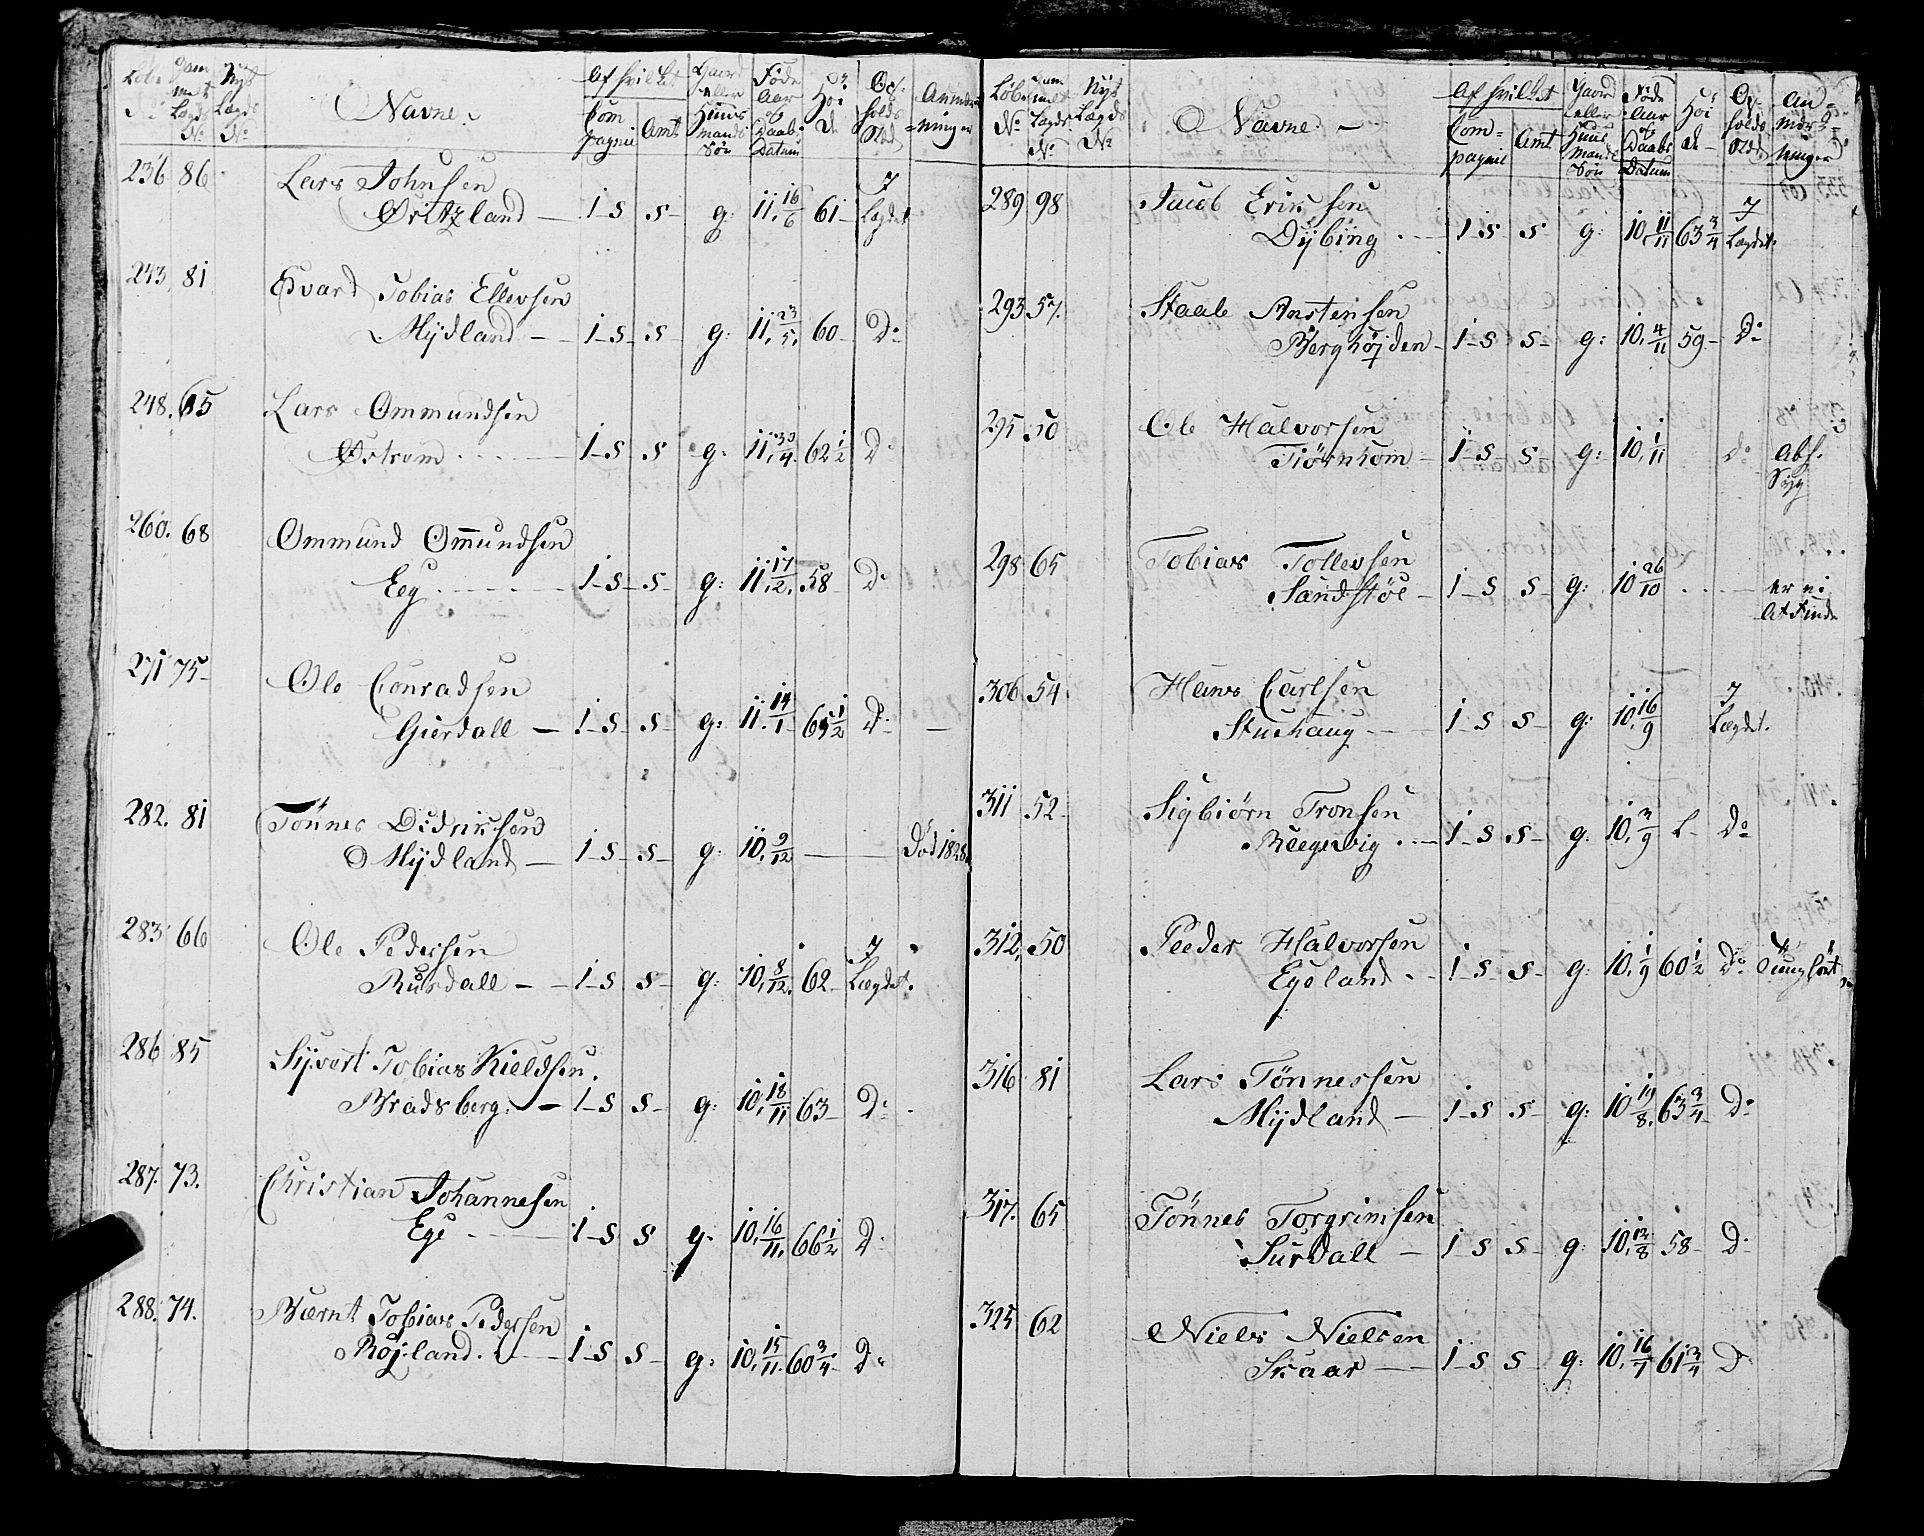 Løbe N: Gammelt Lægds N: Nyt Lægds N: Navne. Af hvilket Compagnie Amt Gaard eller Huusmands Søn Føde Aar og Daabs Datum Høide Opholds Sted Anmærkninger
236 86 Lars Johnsen
Øritzland — 1-S S- g: 11. 16/6 61- J Lægdet
243. 81 Edvard Tobias Ellevsen
Mÿdland — 1-S- S- g: 11. 23/5. 60- Do
248. 65 Lars Ommundsen
Østrem 1-S S g: 11. 30/4 62 1/2 Do
260. 68 Ommund Om̅undsen
Eeg 1-S- S- g: 11. 17/2. 58- Do
271 75- Ole Conradsen
Gierdall — 1-S- S- g: 11. 14/1 65 1/2 Do —
282. 81 Tönnes Didriksen
Mÿdland — 1-S- S- g: 10. 9/12 — — Död 1828
283 66 Ole Pedersen
Rusdall — 1-S S- g: 10. 8/12. 62- J Lægdet.
286 85 Sÿvert Tobias Kieldsen.
Bradsberg. — 1-S S- g: 10. 18/11 63- Do
287. 73. Christian Johannesen
Ege 1-S S g. 10. 16/11. 66 1/2 Do
288. 74. Bærnt Tobias Pedersen
Röjland. 1-S S- g: 10. 15/11. 60 3/4- Do
Løbe N: Gammelt Lægds N: Nyt Lægds N: Navne. — Af hvilket Compagnie Amt Gaard eller Huusmands Søn Føde Aar og Daabs Datum Høide Opholds Sted Anmærkninger
289 98 Jacob Eriksen
Dÿbing 1-S S g: 10. 11/11 63 3/4 J Lægdet.
293 57. Staale Anstensen
Berghöjden- 1-S S- g: 10. 4/11 59- Do
295 50 Ole Halvorsen
Tiörnhom — 1-S- S- g: 10. 1/11 do abs. Syg
298 65 Tobias Tollevsen
Sandstöe — 1-S S- g: 10 26/10 er ei At finde
306 54. Hans Carlsen
Stuehaug 1-S S- g: 10. 16/9 J Lægdet.
311 52- Sigbiörn Tronsen
1-S S- g: 10. 3/9 Do
312. 50 Peeder Halvorsen
Egeland 1-S S- g: 10. 1/9 60 1/2 Do Tunghört
316 81 Lars Tönnessen
Mÿdland — 1-S S- g: 10 19/8. 63 3/4- Do
317. 65 Tönnes Torgrimsen
Surdall — 1-S S- g: 10. 12/8 58- Do
325 62 Niels Nielsen
Skaar — 1-S S g: 10. 16/7 61 3/4 Do